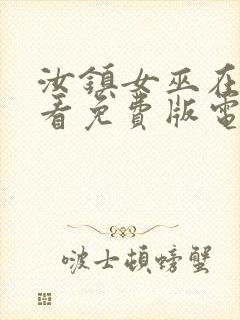 汝鎮女巫在
看免費版電
啵士頓螃蟹